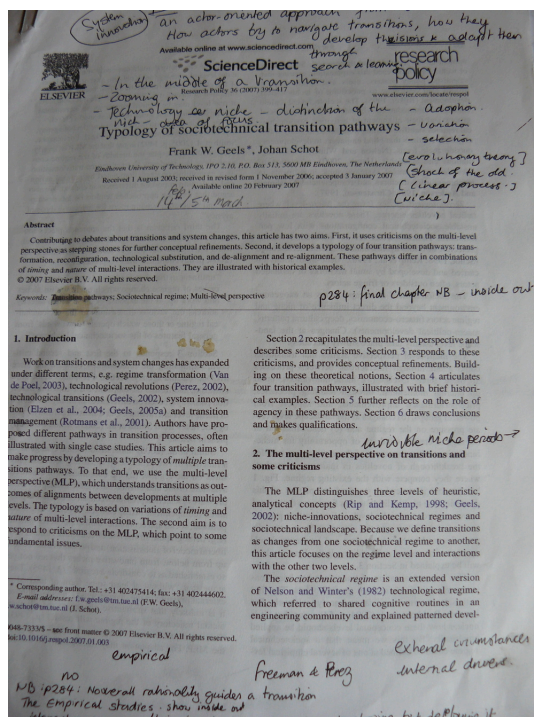 System innovation
an actor-oriented approach
How actors try to navigate transitions, how they
develop decisions & adapt them
through
search & learning
Available online at www.sciencedirect.com
ScienceDirect
research
policy
ELSEVIER
Research Policy 36 (2007) 399–417
www.elsevier.com/locate/respol
- In the middle of a transition.
- Zooming in.
- Technology or niche - distinction of the
nich - area of focus.
- adoption.
- variation
- selection
[evolutionary theory]
[shock of the old.
[linear process.]
[niche].
Typology of sociotechnical transition pathways
Frank W. Geels*, Johan Schot
Eindhoven University of Technology, IPO 2.10, P.O. Box 513, 5600 MB Eindhoven, The Netherlands
Received 1 August 2003; received in revised form 1 November 2006; accepted 3 January 2007
Available online 20 February 2007
14th/5th March
Abstract
Contributing to debates about transitions and system changes, this article has two aims. First, it uses criticisms on the multi-level
perspective as stepping stones for further conceptual refinements. Second, it develops a typology of four transition pathways: trans-
formation, reconfiguration, technological substitution, and de-alignment and re-alignment. These pathways differ in combinations
of timing and nature of multi-level interactions. They are illustrated with historical examples.
© 2007 Elsevier B.V. All rights reserved.
Keywords: Transition pathways; Sociotechnical regime; Multi-level perspective
p284: final chapter NB - inside out
1. Introduction
Work on transitions and system changes has expanded
under different terms, e.g. regime transformation (Van
de Poel, 2003), technological revolutions (Perez, 2002),
technological transitions (Geels, 2002), system innova-
tion (Elzen et al., 2004; Geels, 2005a) and transition
management (Rotmans et al., 2001). Authors have pro-
posed different pathways in transition processes, often
illustrated with single case studies. This article aims to
make progress by developing a typology of multiple tran-
sitions pathways. To that end, we use the multi-level
perspective (MLP), which understands transitions as out-
comes of alignments between developments at multiple
levels. The typology is based on variations of timing and
nature of multi-level interactions. The second aim is to
respond to criticisms on the MLP, which point to some
fundamental issues.
* Corresponding author. Tel.: +31 402475414; fax: +31 402444602.
E-mail addresses: f.w.geels@tm.tue.nl (F.W. Geels),
w.schot@tm.tue.nl (J. Schot).
0048-7333/$ – see front matter © 2007 Elsevier B.V. All rights reserved.
doi:10.1016/j.respol.2007.01.003
Section 2 recapitulates the multi-level perspective and
describes some criticisms. Section 3 responds to these
criticisms, and provides conceptual refinements. Build-
ing on these theoretical notions, Section 4 articulates
four transition pathways, illustrated with brief histori-
cal examples. Section 5 further reflects on the role of
agency in these pathways. Section 6 draws conclusions
and makes qualifications.
invisible niche periods →
2. The multi-level perspective on transitions and
some criticisms
The MLP distinguishes three levels of heuristic,
analytical concepts (Rip and Kemp, 1998; Geels,
2002): niche-innovations, sociotechnical regimes and
sociotechnical landscape. Because we define transitions
as changes from one sociotechnical regime to another,
this article focuses on the regime level and interactions
with the other two levels.
The sociotechnical regime is an extended version
of Nelson and Winter's (1982) technological regime,
which referred to shared cognitive routines in an
engineering community and explained patterned devel-
empirical
freeman & Perez
external circumstances
internal drivers.
no
NB: p284: No overall rationality guides a transition
The Empirical studies show inside out